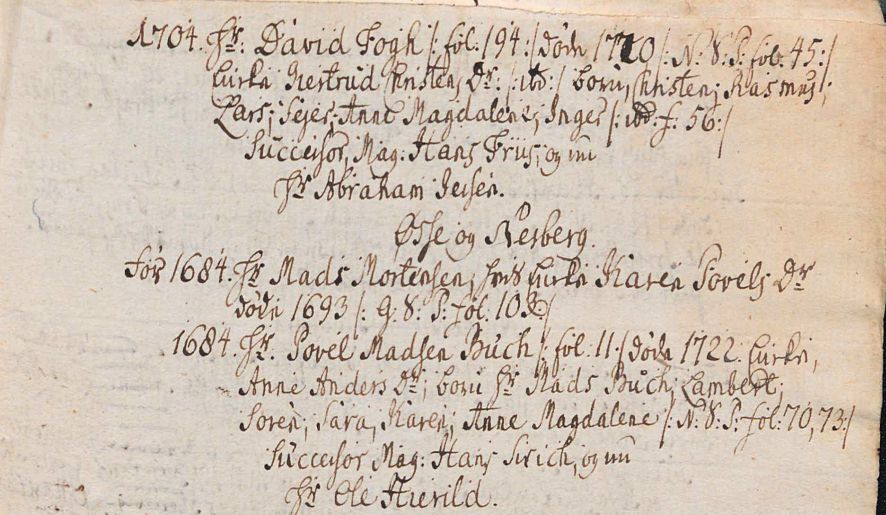 1704. Hr: David Fogh /: fol: 194:/ døde 1720 /: N: S: P: fol: 45:/
Enke Giertrud Christens Dr: /: ibd:/ børn, Christen; Rasmus;
Lars; Sejer; Anne Magdalene, Inger /: ibd: f: 56:/
Successor, Mag: Hans Friis; og nu
Hr Abraham Jessen.
Øsse og Næsberg.
før 1684. Hr Mads Mortensen, hvis Enke Karen Povels Dr
døde 1693 /: G: S: P: fol. 103:/
1684. Hr. Povel Madsen Buch /: fol: 11:/ døde 1722. Enke,
Anne Anders Dr; børn Hr Mads Buch, Lambert;
Søren; Sara, Karen; Anne Magdalene /: N: S: P: fol: 70, 73:/
Successor Mag: Hans Sirich, og nu
Hr Ole Hierild.